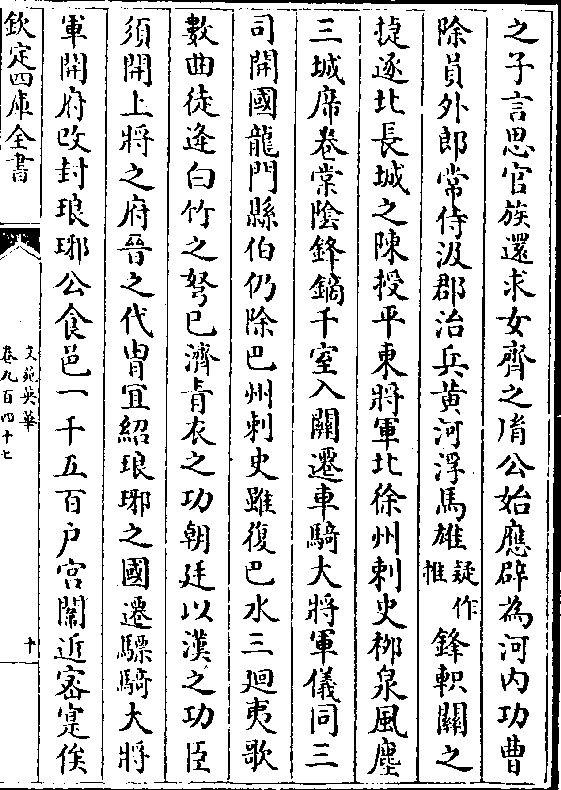 之子言思官族還求女齊之胄公始應辟為河内功曹
除員外郎常侍汲郡治兵黄河浮馬雄疑作推鋒軹關之
捷逐北長城之陳授平東將軍北徐州刺史栁泉風塵
三城席卷棠陰鋒鏑千室入關遷車騎大將軍儀同三
司開國龍門縣伯仍除巴州刺史雖復巴水三廻夷歌
數曲徒逢白竹之弩已濟青衣之功朝廷以漢之功臣
須開上將之府晉之代胄宜紹琅琊之國遷驃騎大將
軍開府改封琅琊公食邑一千五百户宫闈近密寔俟
欽定四庫全書
文苑英華
卷九百四十七
十